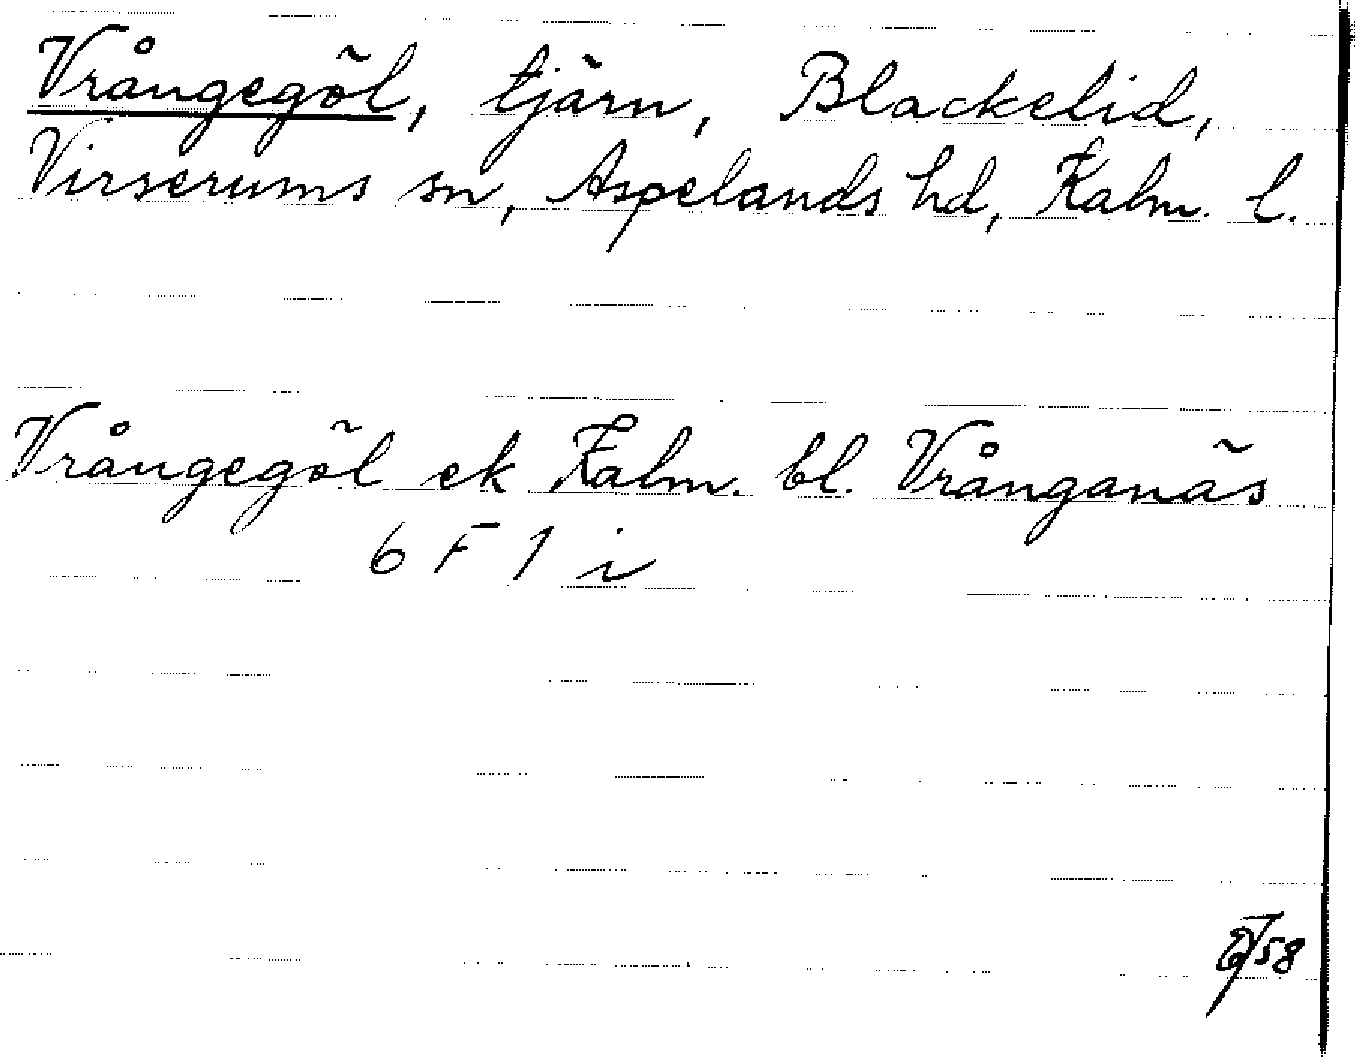 Vrångegöl, tjärn, Blackelid,
Virserums sn, Aspelands hd, Kalm. l.
Vrångegöl ek Kalm. bl. Vrånganäs
6 F 1 i
58